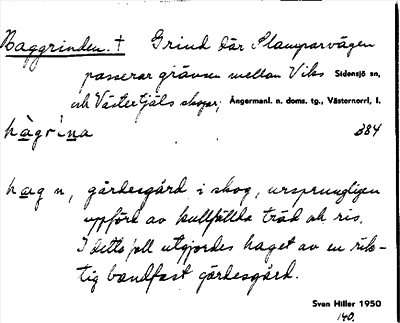 Haggrinden. † Grind där Stamparvägen
passerar gränsen mellan Viks Sidensjö sn,
och Västertjäls skogar, Ångermanl. n. doms. tg., Västernorrl. l.
hàgri̇̀na 384
hag n, gärdesgård i skog, ursprungligen
uppförd av kullfällda träd och ris.
I detta fall utgjordes haget av en rik-
tig bandfast gärdesgård.
Sven Hiller 1950
140.